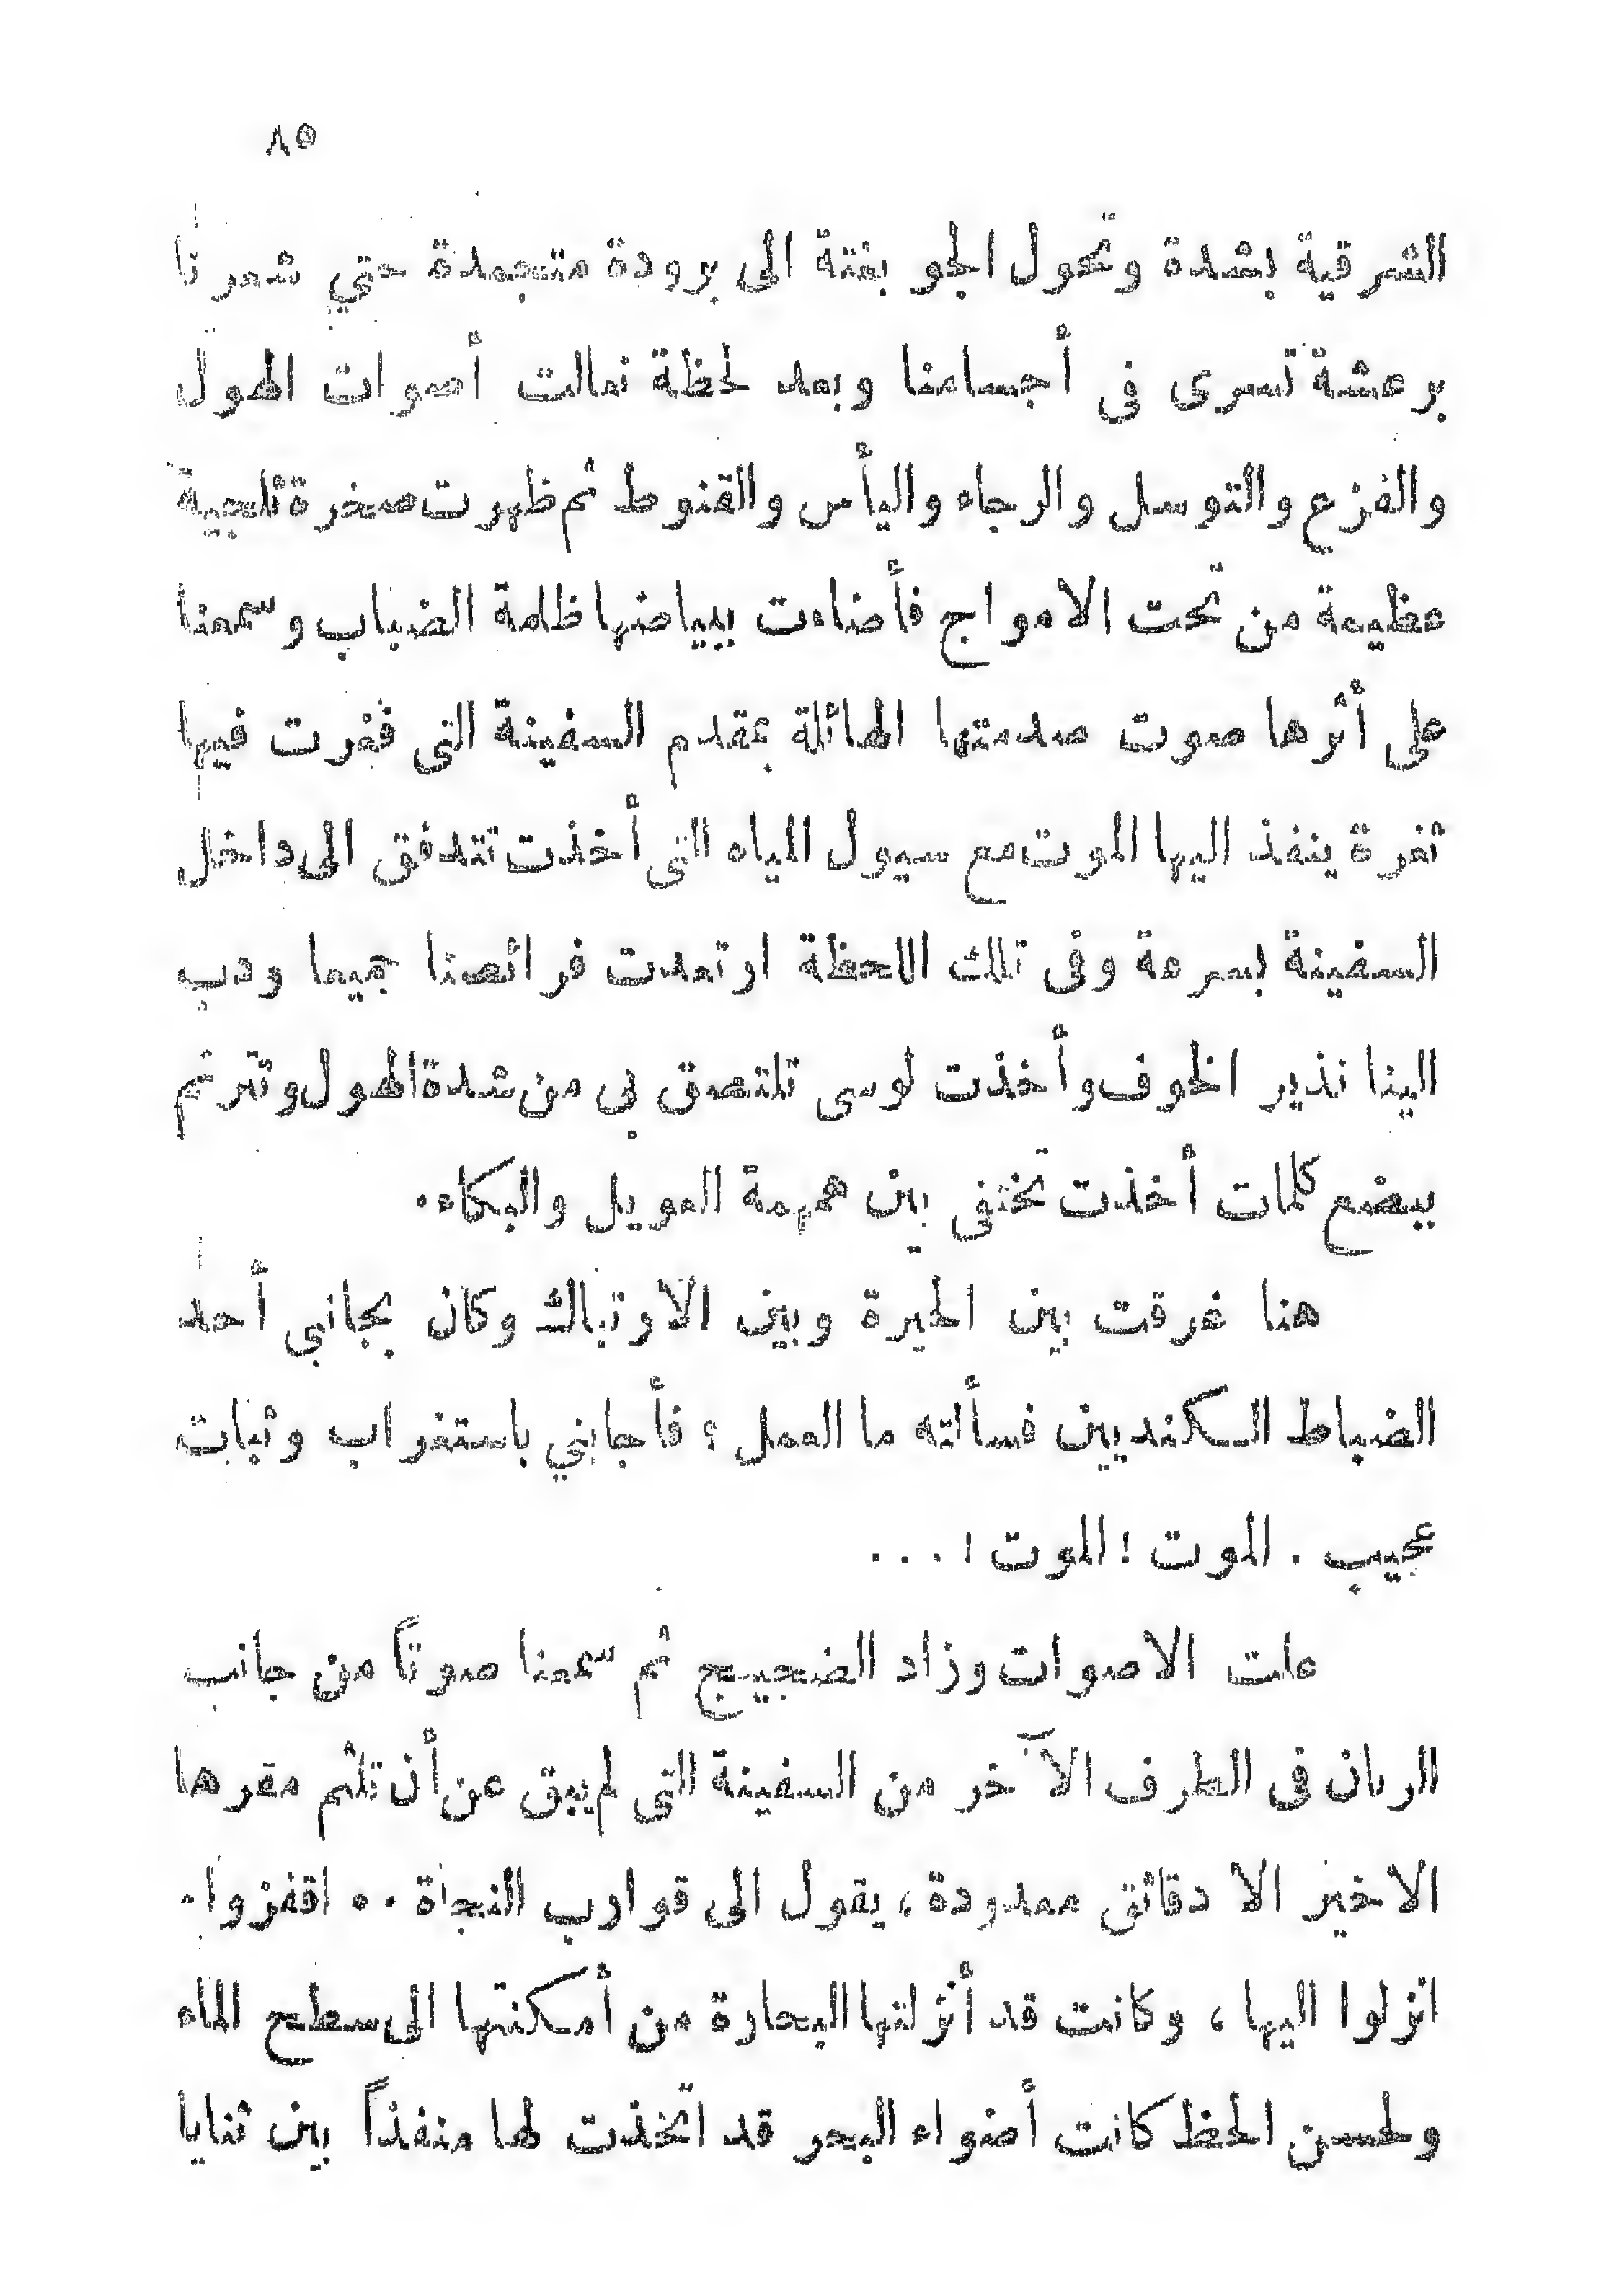 ٨٥
الشرقية بشدة وتحول الجو بغتة الى برودة متجمدة حتي شعرنا
برعشة تسرى فى أجسامنا وبعد لحظة تعالت أصوات الهول
والفزع والتوسل والرجاء واليأس والقنوط ثم ظهرت صخرة ثلجية
عظيمة من تحت الامواج فأضاءت ببياضها ظلمة الضباب وسمعنا
على أثرها صوت صدمتها الهائلة بمقدم السفينة التى فغرت فيها
ثغرة ينفذ اليها الموت مع سيول المياه التى أخذت تتدفق الى داخل
السفينة بسرعة وفى تلك اللحظة ارتعدت فرائصنا جميعا ودب
الينا نذير الخوف وأخذت لوسى تلتصق بى من شدة الهول وتترنم
ببضع كلمات أخذت تختفى بين همهمة العويل والبكاء.
هنا غرقت بين الحيرة وبين الارتباك وكان بجانبى أحد
الضباط السكنديين فسألته ما العمل ؟ فأجابني باستغراب وثبات
عجيب . الموت ! الموت ! ...
علت الاصوات وزاد الضجيج ثم سمعنا صوتاً من جانب
الربان فى الطرف الآخر من السفينة التى لم يبق عن أن تلثم مقرها
الاخير الا دقائق معدودة ، يقول الى قوارب النجاة .. اقفزوا .
انزلوا اليها ، وكانت قد أنزلتها البحارة من أمكنتها الى سطح الماء
ولحسن الحظ كانت أضواء البحر قد اتخذت لها منفذاً بين ثنايا